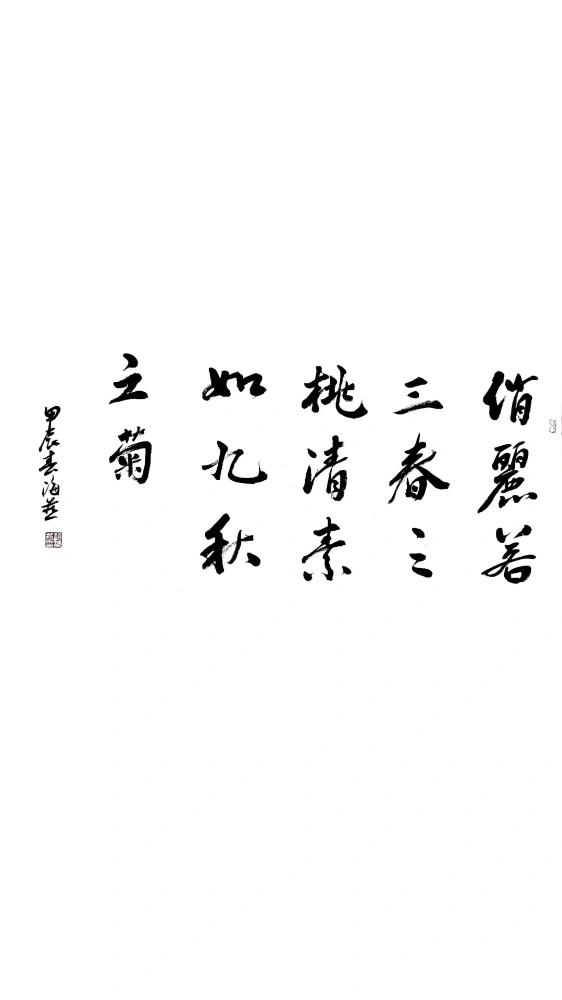 俏麗若
三春之
桃清素
如九秋
之菊
甲辰春海燕